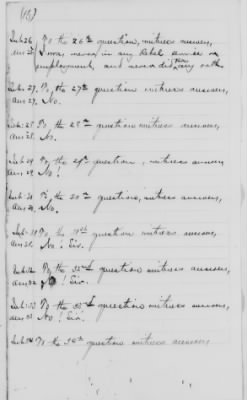 (15)
Int. 26 To the 26th question, witness answers,
ans 26 I was never in any Rebel service or
employment, and never did any oath
Int. 27. To the 27th question witness answers,
ans 27. No.
Int. 28 To the 28th question witness answers,
ans 28. No.
Int. 29 To the 29th question, witness answers
ans 29. No!
Int. 30 To the 30th question, witness answers,
ans 30. No.
Int. 31 To the 31st question witness answers,
ans 31. No! Sir.
Int. 32 To the 32nd question witness answers,
ans 32 No! Sir.
Int. 33 To the 33rd question witness answers,
ans 33 No! Sir.
Int. 34 To the 34th question witness answers